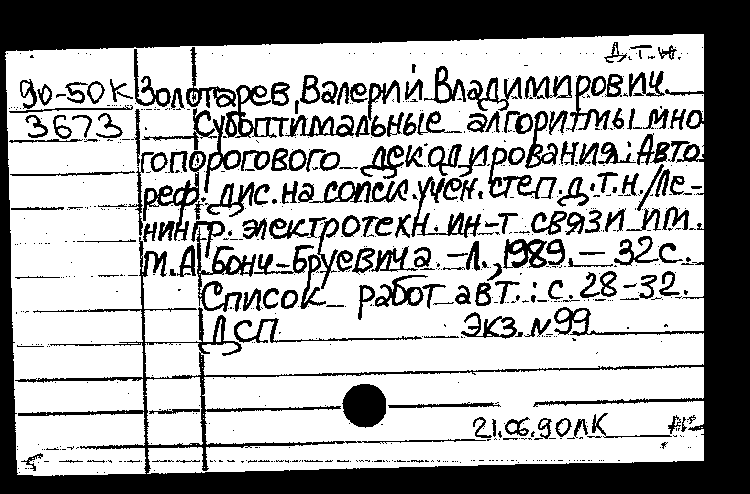 Д.Т.Н.
90-50К Золотарев, Валерий Владимирович.
3673 Субоптимальные алгоритмы мно
гопорогового декодирования: Авто-
реф. дис. на соиск. учен. степ. д.т.н. /Ле-
нингр. электротехн. ин-т связи им.
М.А. Бонч-Бруевича. - Л., 1989. - 32 с.
Список работ авт.: с. 28-32.
ДСП Экз. N99
21.06.90ЛК